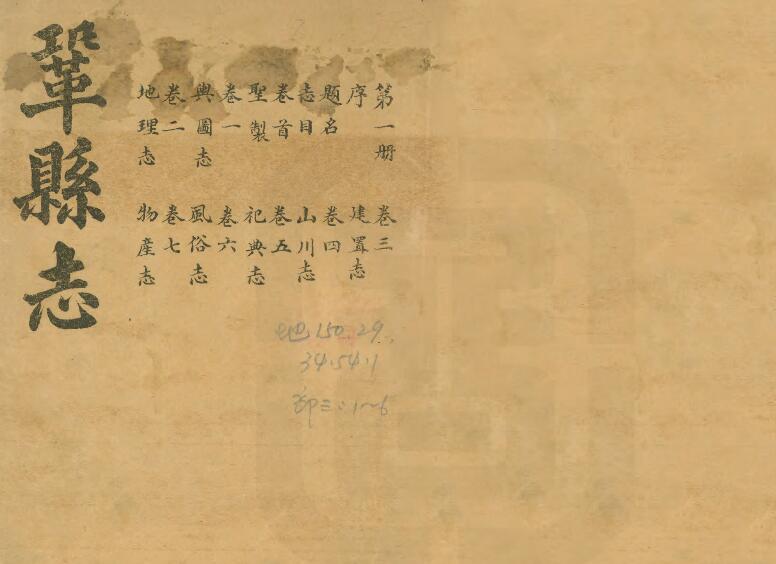 鞏縣志
第一册
序
題名
志目
卷首
聖製
卷一
輿圖志
卷二
地理志
卷三
建置志
卷四
山川志
卷五
祀典志
卷六
風俗志
卷七
物產志
地150.29
34.54.1